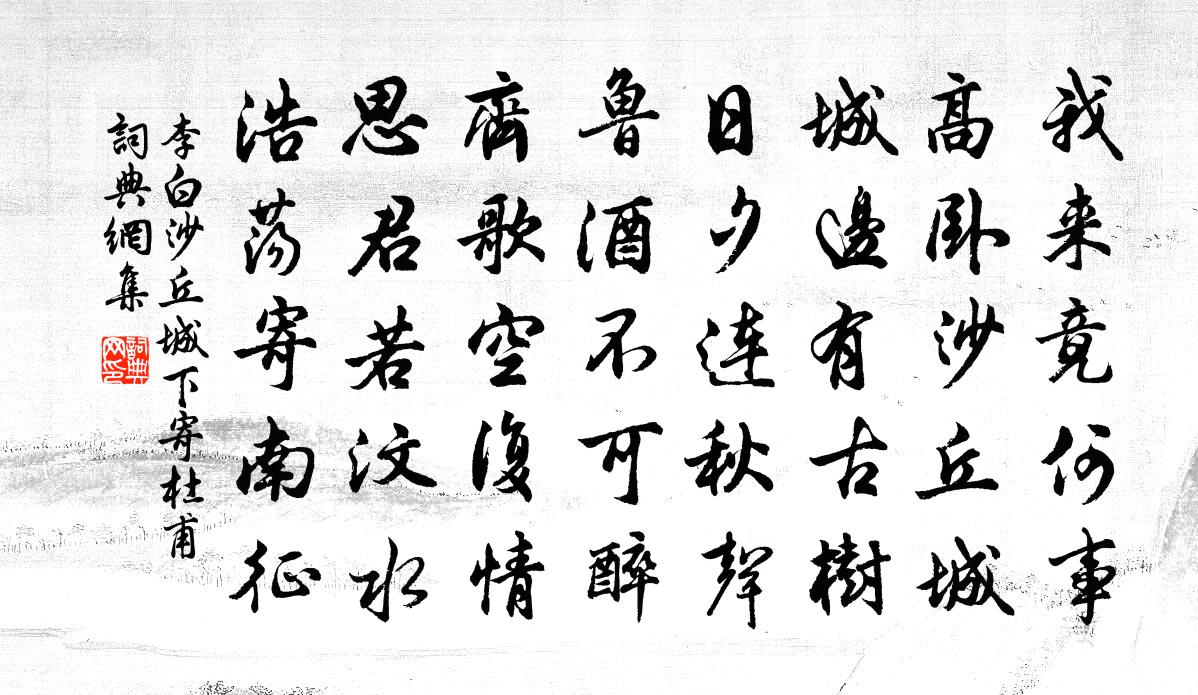 我来竟何事
高卧沙丘城
城邊有古樹
日夕连秋聲
魯酒不可醉
齊歌空復情
思君若汶水
浩蕩寄南征
李白沙丘城下寄杜甫
詞典網集
詞典网印